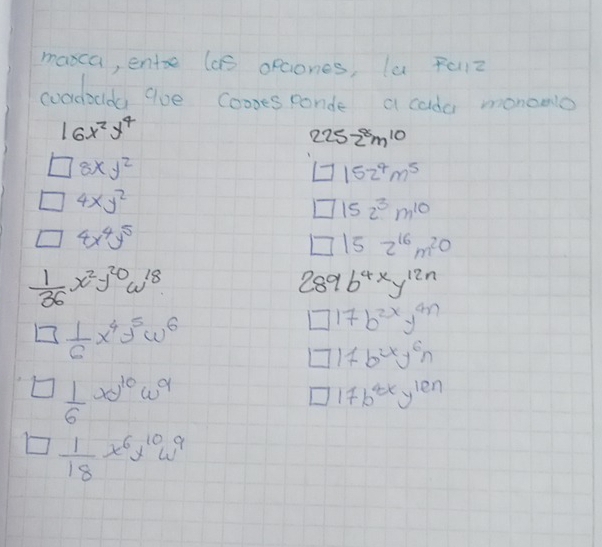 marca, entre las opciones, la Raiz
cuadrada que corresponde a cada monomio
16x²y⁴
□ 8xy²
□ 4xy²
□ 4x⁴y⁵
1/36 x²y²⁰w¹⁸
□ 1/6 x⁴y⁵w⁶
□ 1/6 xy¹⁰w⁹
□ 1/18 x⁶y¹⁰w⁹
225z⁸m¹⁰
□ 15z⁴m⁵
□ 15z³m¹⁰
□ 15 z¹⁶m²⁰
289b⁴ˣy¹²ⁿ
□ 17b²ˣy⁴ⁿ
□ 17b²ˣy⁶ⁿ
□ 17b⁸ˣy¹⁰ⁿ